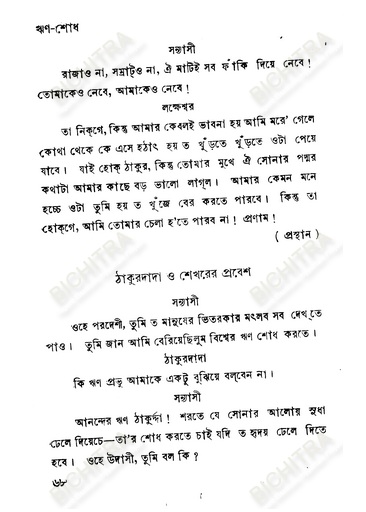 ঋণ-শোধ
সন্ন্যাসী
রাজাও না, সম্রাট্‌ও না, ঐ মাটিই সব ফাঁকি দিয়ে নেবে!
তোমাকেও নেবে, আমাকেও নেবে!
লক্ষেশ্বর
তা নিক্‌গে, কিন্তু আমার কেবলই ভাবনা হয় আমি মরে’ গেলে
কোথা থেকে কে এসে হঠাৎ হয় ত খুঁড়তে খুঁড়তে ওটা পেয়ে
যাবে। যাই হোক্‌ ঠাকুর, কিন্তু তোমার মুখে ঐ সোনার পদ্মর
কথাটা আমার কাছে বড় ভালো লাগ্‌ল। আমার কেমন মনে
হচ্চে ওটা তুমি হয় ত খুঁজে বের করতে পারবে। কিন্তু তা
হোক্‌গে, আমি তোমার চেলা হ’তে পারব না! প্রণাম!
( প্রস্থান )
ঠাকুরদাদা ও শেখরের প্রবেশ
সন্ন্যাসী
ওহে পরদেশী, তুমি ত মানুষের ভিতরকার মৎলব সব দেখ্‌তে
পাও। তুমি জান আমি বেরিয়েছিলুম বিশ্বের ঋণ শোধ করতে।
ঠাকুরদাদা
কি ঋণ প্রভু আমাকে একটু বুঝিয়ে বল্‌বেন না।
সন্ন্যাসী
আনন্দের ঋণ ঠাকুর্দ্দা! শরতে যে সোনার আলোয় সুধা
ঢেলে দিয়েচে—তা’র শোধ করতে চাই যদি ত হৃদয় ঢেলে দিতে
হবে। ওহে উদাসী, তুমি বল কি?
৬৮
BICHITRA